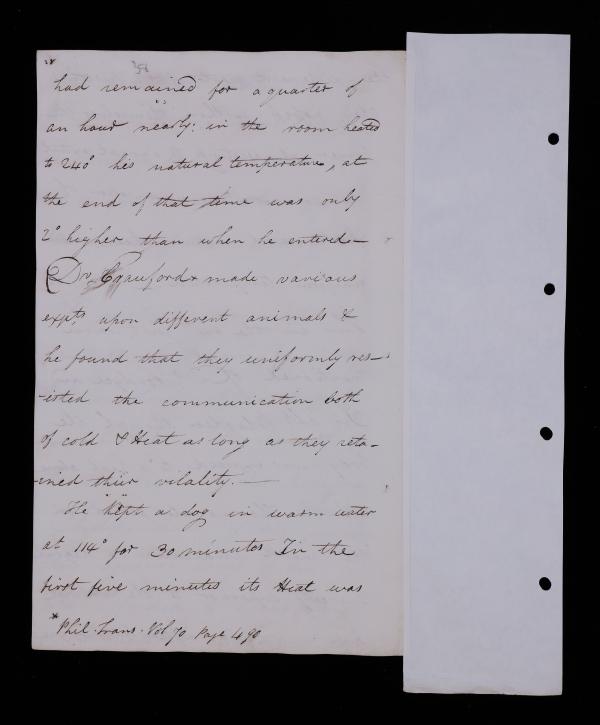 28
had remained for a quarter of
an hour nearly: in the room heated
to 240° his natural temperature, at
the end of that time was only
2° higher than when he entered —
Dr. Crawford* made various
expts. upon different animals &
he found that they uniformly res-
-isted the communication both
of cold & Heat as long as they reta-
-ined thier vitality. —
He kept a dog in warm water
at 114° for 30 minutes In the
first five minutes its Heat was
* Phil. Trans. Vol 70 Page 490